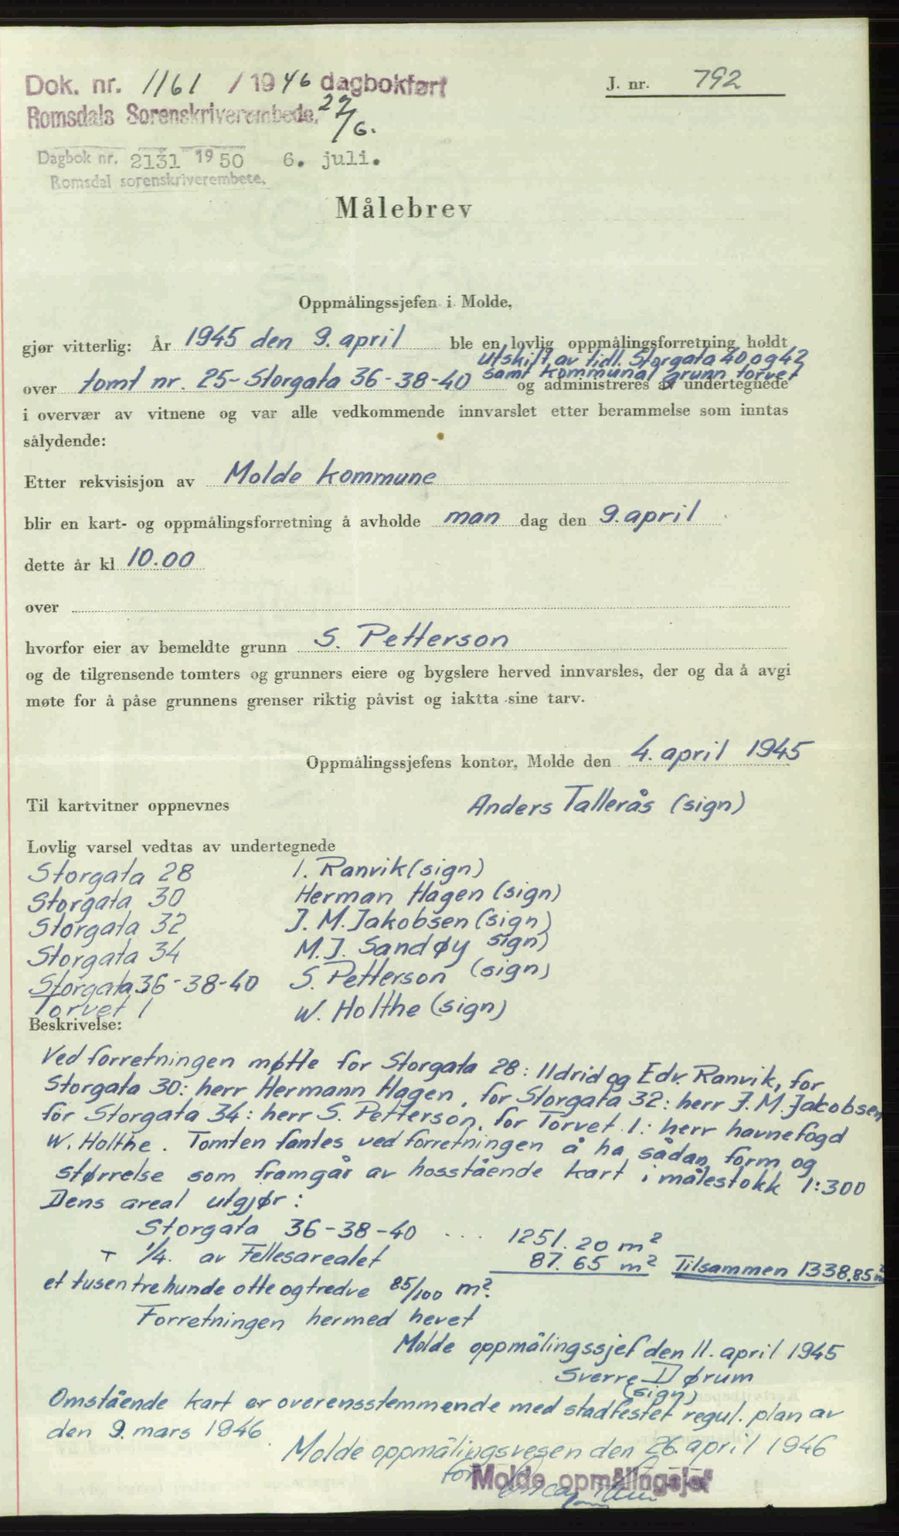 Dok. nr. 1161 / 1946 dagbokført
Romsdals Sorenskriverembede. 27/6.
J. nr. 792
Dagbok nr. 2131 1950 6. juli.
Romsdal sorenskriverembete.
Målebrev
Oppmålingssjefen i Molde,
gjør vitterlig: År 1945 den 9. april ble en lovlig oppmålingsforretning holdt
utskift av tidl. Storgata 40 og 42
samt kommunal grunn torvet
over tomt nr. 25 - Storgata 36-38-40 og administreres av undertegnede
i overvær av vitnene og var alle vedkommende innvarslet etter berammelse som inntas
sålydende:
Etter rekvisisjon av Molde kommune
blir en kart- og oppmålingsforretning å avholde man dag den 9. april
dette år kl 10.00
over
hvorfor eier av bemeldte grunn S. Petterson
og de tilgrensende tomters og grunners eiere og bygslere herved innvarsles, der og da å avgi
møte for å påse grunnens grenser riktig påvist og iaktta sine tarv.
Oppmålingssjefens kontor, Molde den 4. april 1945
Til kartvitner oppnevnes Anders Tallerås (sign)
Lovlig varsel vedtas av undertegnede
Storgata 28 I. Ranvik (sign)
Storgata 30 Herman Hagen (sign)
Storgata 32 J. M. Jakobsen (sign)
Storgata 34 M. J. Sandøy sign)
Storgata 36-38-40 S. Petterson (sign)
Torvet 1 W. Holthe (sign)
Beskrivelse:
Ved forretningen møtte for Storgata 28: Ildrid og Edv. Ranvik, for
Storgata 30: herr Hermann Hagen, for Storgata 32: herr J. M. Jakobsen
for Storgata 34: herr S. Petterson, for Torvet 1: herr havnefogd
W. Holthe. Tomten fantes ved forretningen å ha sådan form og
størrelse som framgår av hosstående kart i målestokk 1:300
Dens areal utgjør:
Storgata 36-38-40 ... 1251.20 m²
+ 1/4. av Fellesarealet 87.65 m² Tilsammen 1338.85 m²
et tusen tre hunde otte og tredve 85/100 m².
Forretningen hermed hevet
Molde oppmålingssjef den 11. april 1945
Sverre Dørum
(sign)
Omstående kart er overensstemmende med stadfestet regul. plan av
den 9. mars 1946
Molde oppmålingsvesen den 26. april 1946
for Molde opmålingssjef